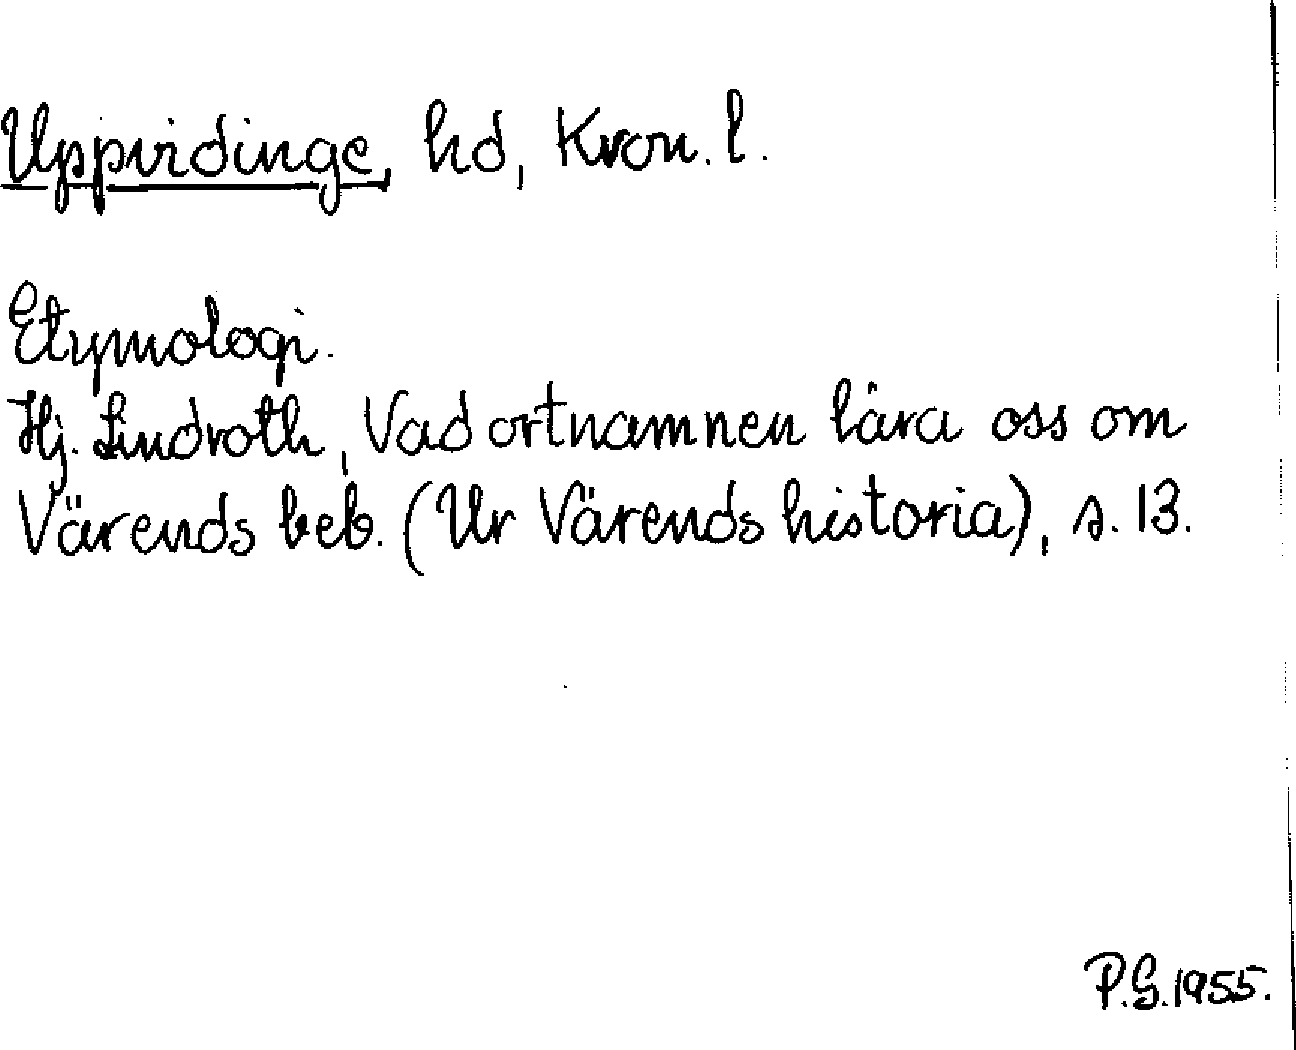 Uppvidinge, hd, Kron. l.
Etymologi.
Hj. Lindroth, Vad ortnamnen lära oss om
Värends beb. (Ur Värends historia), s. 13.
P.G. 1955.